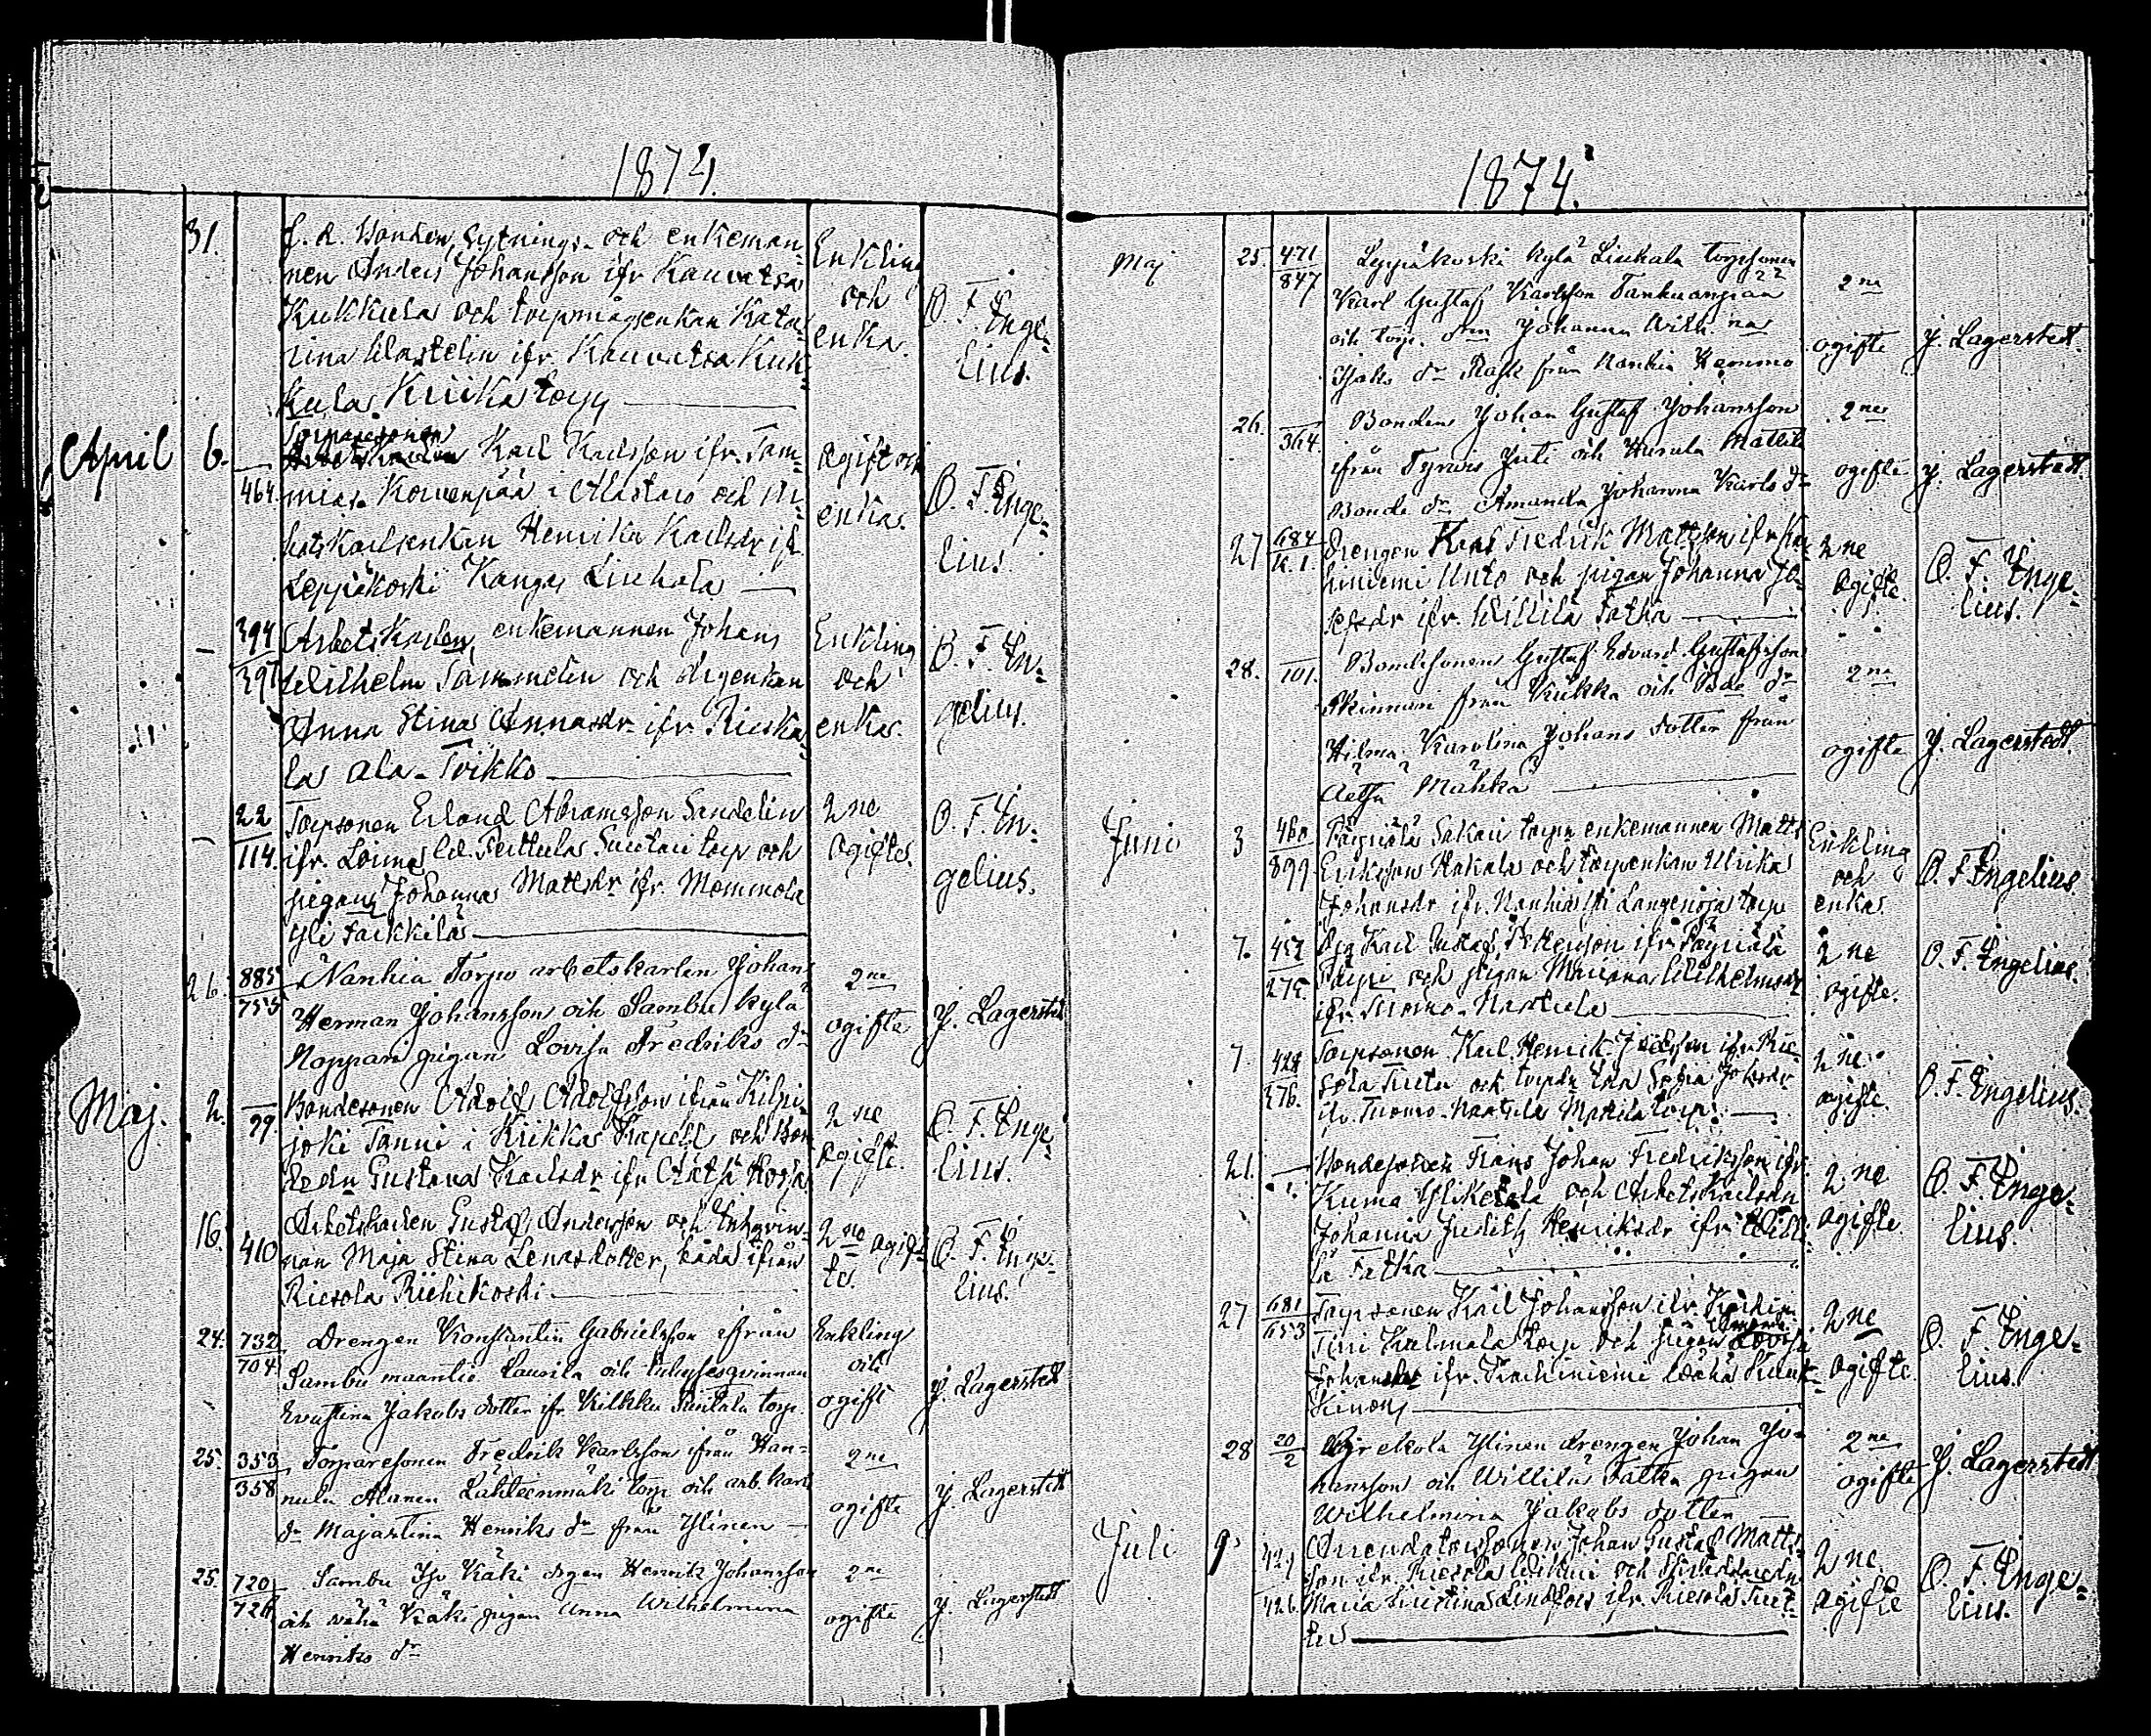 1874.
31.
f. d. Bonden, Sytnings- och enkeman-
nen Anders Johansson ifr Kauvatsa
Kukkula och torpmågsenkan Kata-
rina Wastelin ifr. Kauvatsa Kuk-
kula Kriika torp
Enkling
och
enka.
O. F. Enge-
lius.
April 6.
464.
Torparesonen
Karl Karlsson ifr. Tam-
miais Korvenpää i Alastaro och Ar-
betskarlsenkan Henrika Karlsdr ifr
Leppäkoski Kangas Liuhala
Ogift och
enka.
O. F. Enge-
lius.
394
397
Arbetskarlen, enkemannen Johan
Wilhelm Tammelin och drgenkan
Anna Stina Annasdr ifr Rieska-
la Ala-Tvikko
Enkling
och
enka.
O. F. En-
gelius.
22
114.
Torpsonen Erland Abramsson Sandelin
ifr. Loima Suutari torp och
pigan Johanna Mattsdr ifr. Mommola
Yli Takkila
2 ne
Ogifte.
O. F. En-
gelius.
26. 885
755
Nanhia Torpo arbetskarlen Johan
Herman Johansson och Sambu kylä
Noppari pigan Lovisa Fredriks dr
2 ne
ogifte
J. Lagerstedt
Maj. 2.
79.
Bondesonen Adolf Adolfsson ifrån Kilpi-
joki Tanni i Kiikka Kapell och Bon-
dedn Gustava Karlsdr ifr Äetsä Kosja
2 ne
Ogifte.
O. F. Enge-
lius.
16. 410
Arbetskarlen Gustaf Andersson och Inhqvin-
nan Maja Stina Lenasdotter, båda ifrån
Riesola Riihikoski
2 ne ogif-
te.
O. F. Enge-
lius.
24. 732
704
Drengen Konstantin Gabrielsson ifrån
Sambu maantie Laurila och Inhysesqvinnan
Evastina Jakobs dotter ifr Kilkku Punkala torp
Enkling
och
ogift
J. Lagerstedt
25. 353
358
Torparesonen Fredrik Karlsson ifrån Han-
nula Alanen Lähteenmäki torp och arb. karls
dr Majastina Henriks dr från Ylinen
2 ne
ogifte
J. Lagerstedt
25. 720
726
Sambu Iso Käki drgen Henrik Johansson
och vähä Käki pigan Anna Wilhelmina
Henriks dr
2 ne
ogifte
J. Lagerstedt
1874.
Maj 25. 471
847
Leppäkoski kylä Liuhala torpsonen
Karl Gustaf Karlsson Tankuanpää
och torp. dn Johanna Wilh.na
Isaks dr Rask från Nanhia Hemmo
2 ne
ogifte
J. Lagerstedt
26.
364.
Bonden Johan Gustaf Johansson
ifrån Tyrvis Juti och Hurula Mattila
Bonde dr Amanda Johanna Karls dr
2 ne
ogifte
J. Lagerstedt
27 684
K. 1.
Drengen Karl Fredrik Mattsson ifr Ka-
hiniemi Unto och pigan Johanna Jo-
sefsdr ifr. Willilä Fatka
2 ne
Ogifte.
O. F. Enge-
lius.
28.
101.
Bondesonen Gustaf Edvard Gustafsson
Skinnari från Kiikka och Bde dr
Hilma Karolina Johans dotter från
Äetsä Mahka
2 ne
ogifte
J. Lagerstedt
Juni 3 460
899
Sakari torpn enkemannen Matts
Eriksson Hakala och torpenkan Ulrika
Johansdr ifr. Nanhia Langenoja torp
Enkling
och
enka.
O. F. Engelius.
7. 457
275.
Drg Karl Gustaf
och pigan Mariana Wilhelmsdr
ifr. Suomo-Nartula
2 ne
ogifte.
O. F. Engelius.
7. 428
276.
Torpsonen Karl Henrik ifr Rie-
sola Tuctu och torpdn Eva Sofia Johsdr
ifr. Tuomo-Nartula Mattila torp.
2 ne
ogifte.
O. F. Engelius.
21.
1.
Bondesonen Frans Johan Fredriksson ifr.
Kuma Yliketola och Arbetskarlsdn
Johanna Judith Henriksdr ifr Willi-
lä Fatka
2 ne
Ogifte.
O. F. Enge-
lius.
27 681
653
Torpsonen Karl Johansson ifr.
Kulmala torp och pigan Lovisa
Johansdr ifr. Karhiniemi
2 ne
Ogifte.
O. F. Enge-
lius.
28 20
2
Ylinen drengen Johan Jo-
hansson och Willilä Fatka pigan
Wilhelmina Jakobs dotter
2 ne
ogifte
J. Lagerstedt
Juli 9. 424
426.
Arendatorssonen Johan Gustaf Matts-
son ifr. Riesola och
Maria Kristina Lindfors ifr. Riesola Tuct-
tu
2 ne
Ogifte
O. F. Enge-
lius.